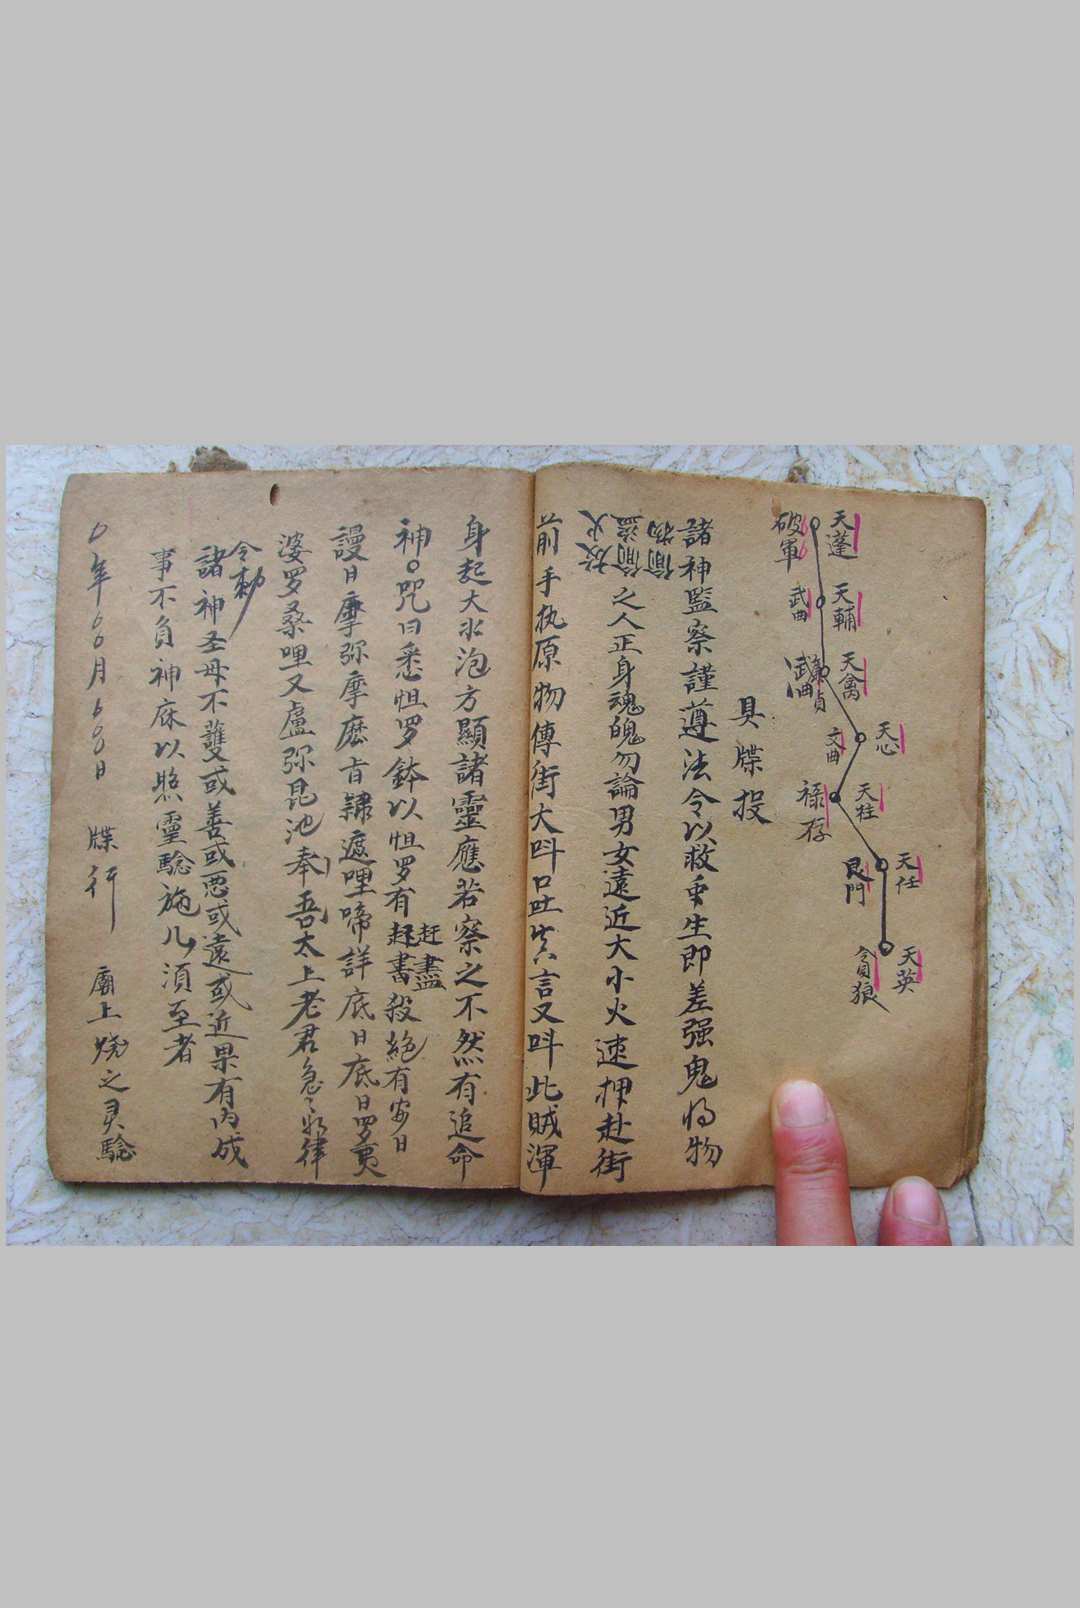 天蓬
破軍
天輔
武曲
天禽
廉貞
天心
文曲
天柱
祿存
天任
艮門
天英
貪狼
具牒投
諸神監察謹遵法令以救重生即差强鬼將物
偷物
偷盜
放火
之人正身魂魄勿論男女遠近大小火速押赴街
前手执原物傳街大呌口吐实言又呌此賊渾
身起大水泡方顯諸靈應若察之不然有追命
神○咒曰悉怛罗鉢以怛罗有
赶盡
殺絕有安日
謾日摩弥摩麽肯隸遮哩啼詳底日底日罗夷
婆罗桑哩又盧弥昆池奉吾太上老君急〻如律
令勅
諸神圣母不護或善或恶或遠或近果有内成
事不負神庥以照靈驗施儿須至者
年 月 日 牒行 廟上燒之灵驗